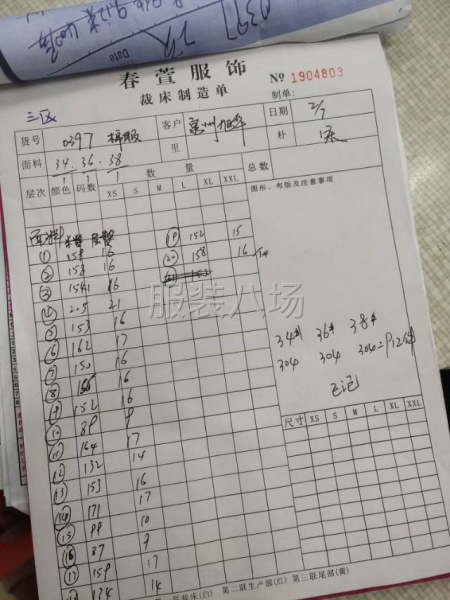 春萱服饰
裁床制造单
№ 1904803
制单：
三区
货号 0397 客户 日期 2/7
面料 34 . 36 . 38 里 朴
1 1 1
层次 颜色 码数 数量 总数
XS S M L XL XXL
图形、布版及注意事项
① 158 16 ⑲ 152 15
② 153 16 ⑳ 158 16
③ 16
④ 205 21
⑤ 153 16
⑥ 162 17
⑦ 150 16
⑧ 16
⑨ 152 16
⑩ 89 9
⑪ 164 17
⑫ 132 14
⑬ 153 16
⑭ 171 17
⑮ 99 10
⑯ 87 9
⑰ 159 17
134 14
34# 36# 38#
304 304 304=912件
已记
尺寸 XS S M L XL XXL
服装八场
第二联生产部(红) 第三联尾部(黄)